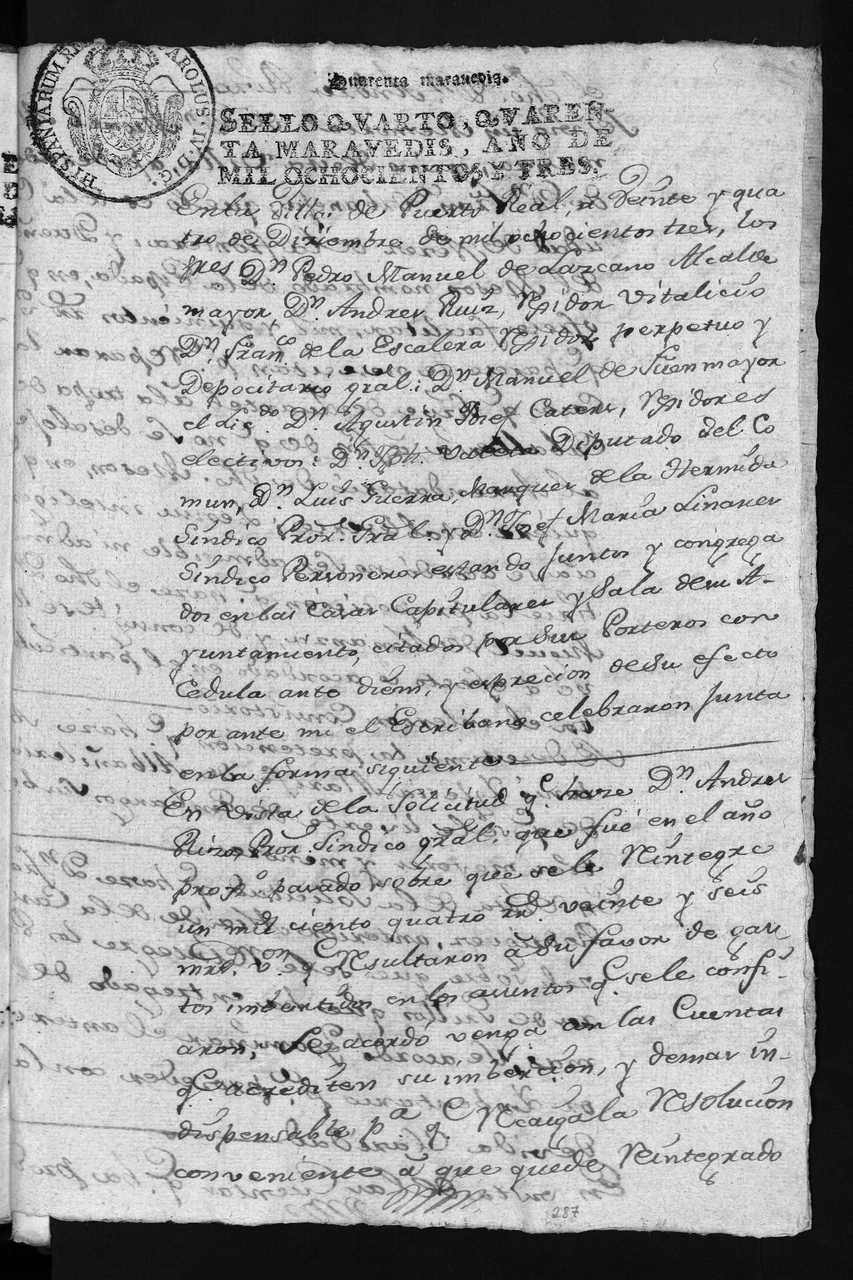 HISPANIARUM REX CAROLUS IV D. G.
Quarenta maravedis.
SELLO QVARTO, QVAREN-
TA MARAVEDIS, AÑO DE
MIL OCHOCIENTOS Y TRES.
En la Villa de Puerto Real, a Veinte y qua
tro de Diziembre de mil ochocientos tres, los
Sres. Dn. Pedro Manuel de Lazcano Alcalde
mayor, Dn. Andres Ruiz, Rexidor Vitalicio
Dn. Franco. de la Escalera Rexidor perpetuo y
Depocitario gral: Dn. Manuel de Fuenmayor
el dis. do Dn. Agustin Josef Catera, Rexidores
electivos: Dn. Diputado del Co
mun, Dn. Luis Guerra, Marques de la Hermida
Sindico Pror. Gral. y Dn. Josef Maria Linares
Sindico Personero: estando Juntos y congrega
dos en las Casas Capitulares y Sala de su A-
yuntamiento, citados por sus Porteros con
Cedula ante diem, y exprecion de su efecto
por ante mi el Escribano celebraron Junta
en la forma siguiente
En vista de la Solicitud q. e hace Dn. Andres
Pror. Sindico gral. que fué en el año
prox.o pasado sobre que se le Reintegre
un mil ciento quatro rs. veinte y seis
mrs. von. q. Resultaron à su favor de gas-
tos imbertidos en los asuntos q. e se le confi-
aron, Se acordó venga con las Cuentas
q. e acrediten su imbercion, y demas in-
dispensable pa. q. e Recaiga la Resolucion
conveniente à que quede Reintegrado
287